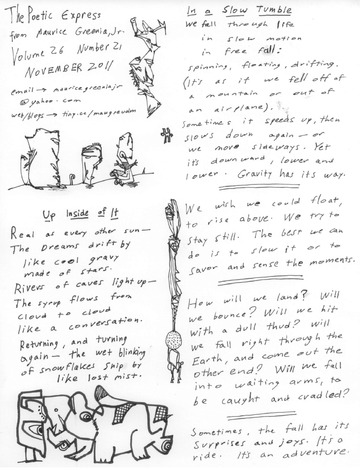 The Poetic Express
from Maurice Greenia, Jr.
Volume 26 Number 21
NOVEMBER 2011
email → mauricegreeniajr
@yahoo.com
web/blogs → tiny.cc/maugreudm
Up Inside of It
Real as every other sun—
The Dreams drift by
like cool gravy
made of stars.
Rivers of caves light up—
The syrup flows from
cloud to cloud
like a conversation.
Returning, and turning
again — the wet blinking
of snowflakes snip by
like lost mist.
In a Slow Tumble
We fall through life
in slow motion
in free fall:
spinning, floating, drifting.
(It's as if we fell off of
a mountain or out of
an airplane).
Sometimes it speeds up, then
slows down again — or
we move sideways. Yet
it's downward, lower and
lower. Gravity has its way.
We wish we could float,
to rise above. We try to
stay still. The best we can
do is to slow it or to
savor and sense the moments.
How will we land? Will
we bounce? Will we hit
with a dull thud? Will
we fall right through the
Earth, and come out the
other end? Will we fall
into waiting arms, to
be caught and cradled?
Sometimes, the fall has its
surprises and joys. It's a
ride. It's an adventure.